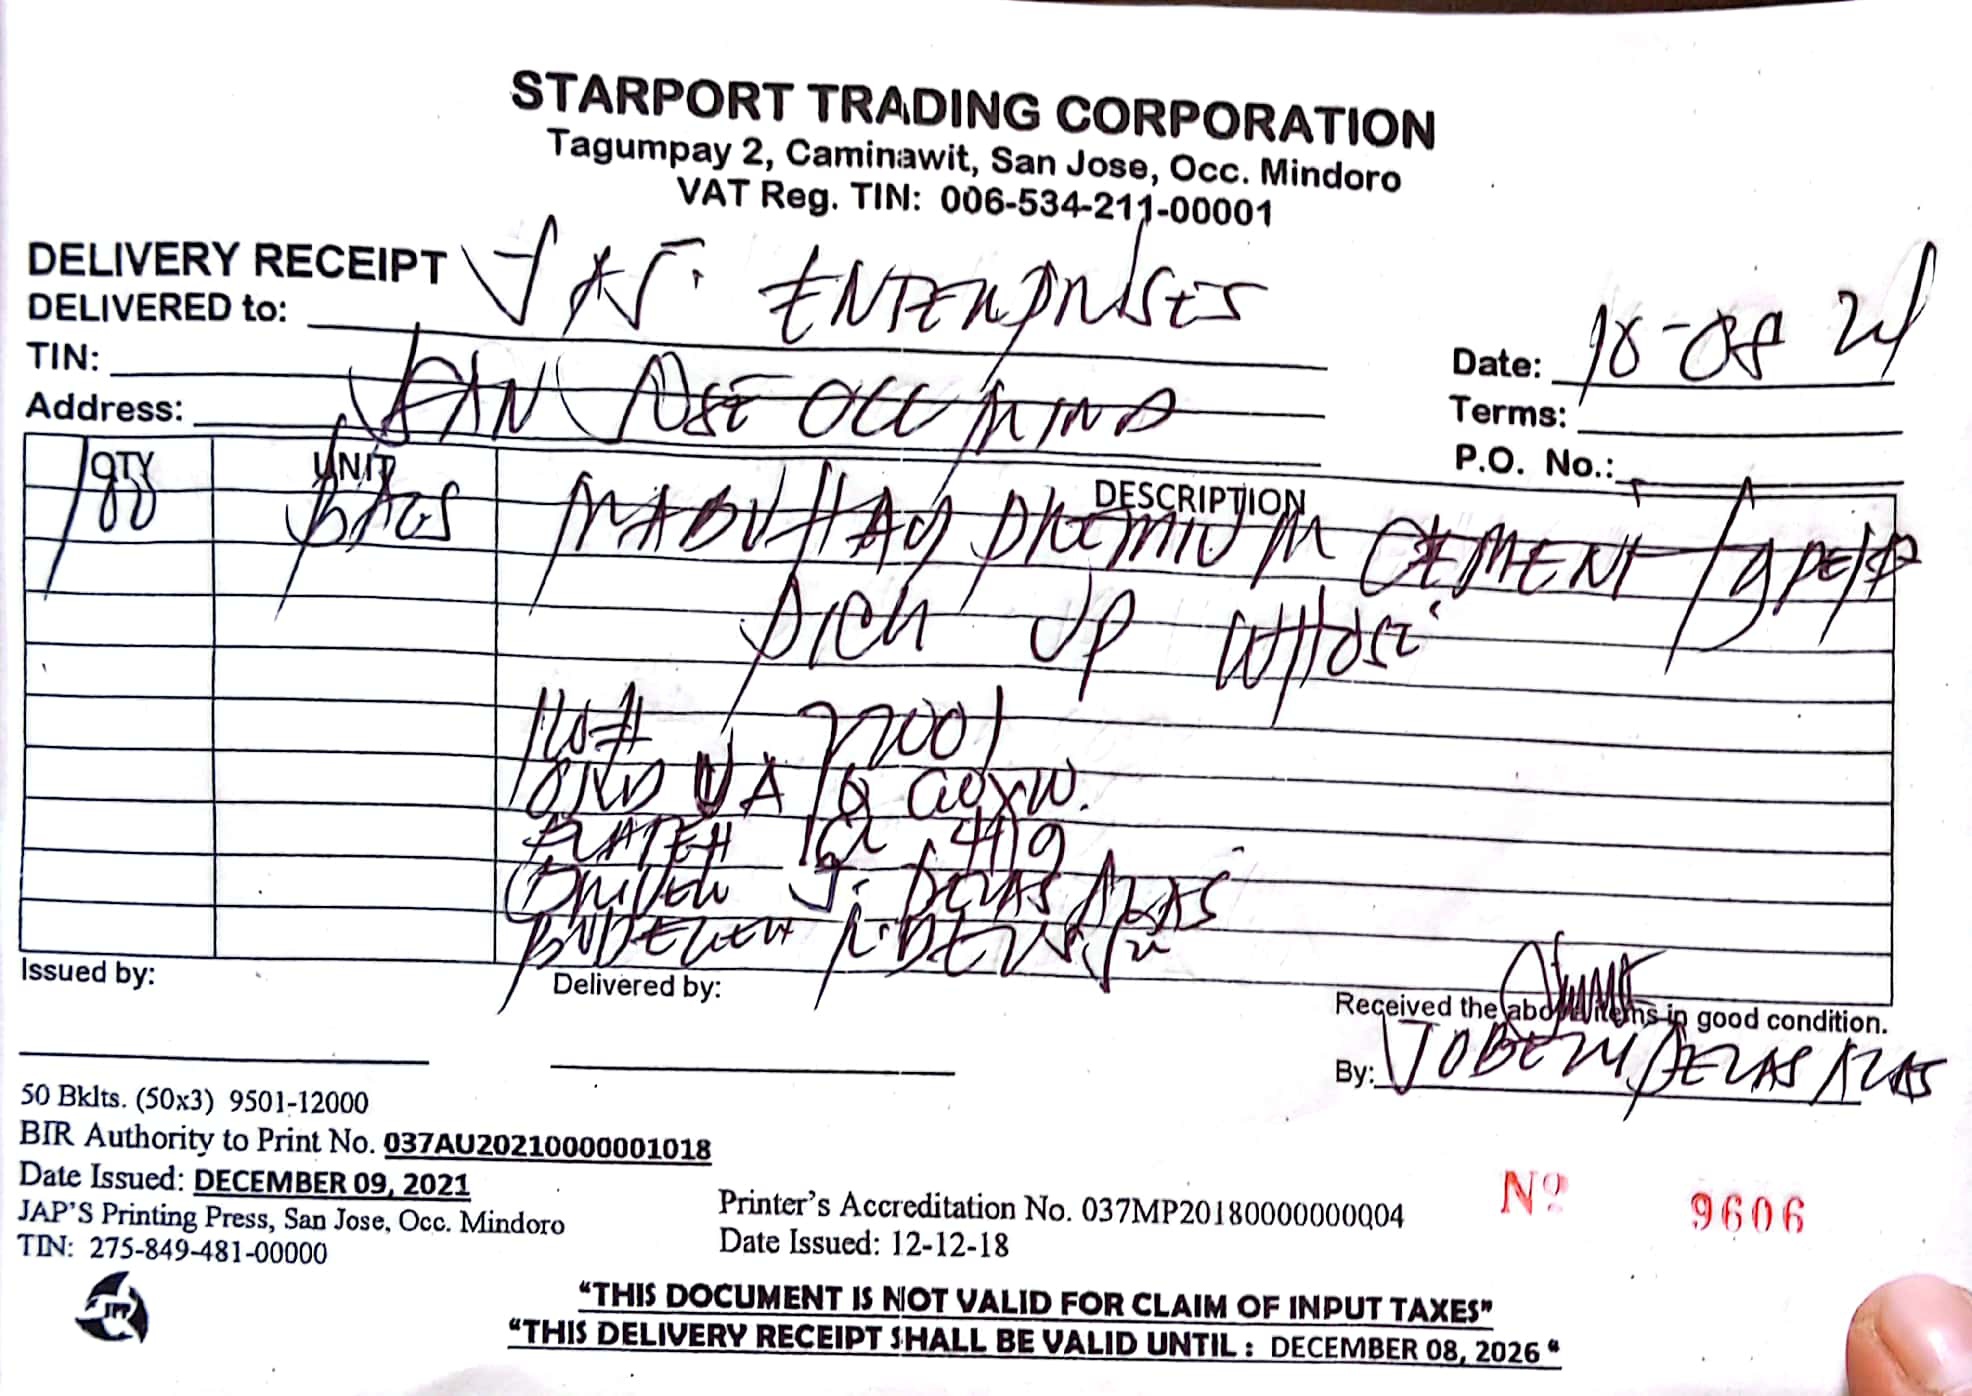 STARPORT TRADING CORPORATION
Tagumpay 2, Caminawit, San Jose, Occ. Mindoro
VAT Reg. TIN: 006-534-211-00001
DELIVERY RECEIPT
DELIVERED to: ENTERPRISES
TIN:
Address: SAN JOSE OCC MIND
Date: 10-08 24
Terms:
P.O. No.:
QTY UNIT DESCRIPTION
100 BAGS MABUHAY PREMIUM CEMENT TYPE 1P
PICK UP WHOSE
PLATE# 419
DRIVER J. DELAS ALAS
Issued by:
Delivered by:
Received the above items in good condition.
By: DELAS ALAS
50 Bklts. (50x3) 9501-12000
BIR Authority to Print No. 037AU20210000001018
Date Issued: DECEMBER 09, 2021
JAP'S Printing Press, San Jose, Occ. Mindoro
TIN: 275-849-481-00000
JPP
Printer's Accreditation No. 037MP20180000000004
Date Issued: 12-12-18
Nº 9606
"THIS DOCUMENT IS NOT VALID FOR CLAIM OF INPUT TAXES"
"THIS DELIVERY RECEIPT SHALL BE VALID UNTIL : DECEMBER 08, 2026 "